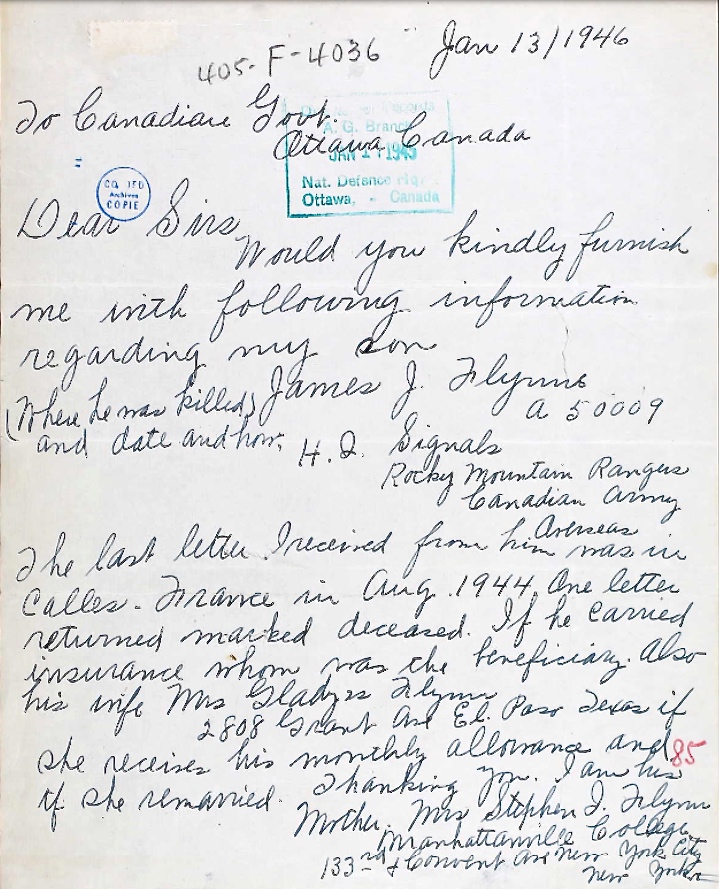 405-F-4036
Jan 13/1946
To Canadian Govt.
Ottawa Canada
A. G. Branch
JAN 1945
Nat. Defence Hq.
Ottawa, - Canada
Archives
COPIE
Dear Sirs
Would you kindly furnish
me with following information
regarding my son
James J. Flynn
(Where he was killed)
and date and how.
A 50009
H.Q. Signals
Rocky Mountain Rangers
Canadian Army
Overseas
The last letter I received from him was in
Calles - France in Aug. 1944. One letter
returned marked deceased. If he carried
insurance whom was the beneficiary. Also
his wife Mrs Gladyss Flynn
2808 Grant Ave El. Paso Texas if
she receives his monthly allowance and
85
if she remarried. Thanking you. I am his
Mother. Mrs Stephen J. Flynn
Manhattanville College
133rd & Convent Ave New York City
New York